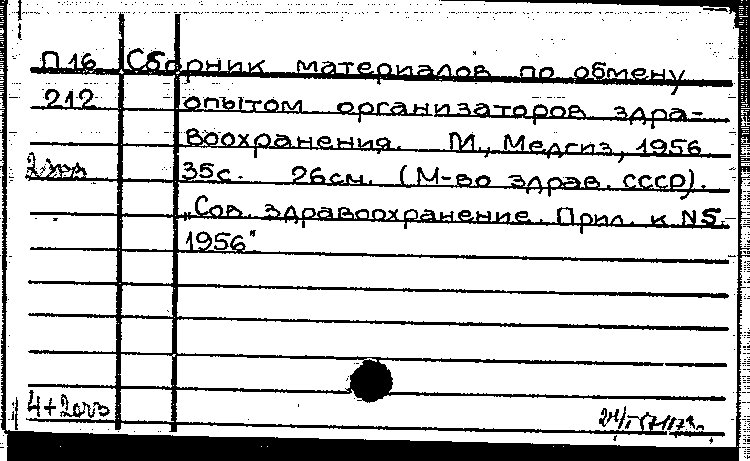 П 16 Сборник материалов по обмену
212 опытом организаторов здра-
воохранения. М., Медгиз, 1956
2 экз 35с. 26см. (М-во здрав. СССР).
„Сов. здравоохранение. Прил. к N5.
1956".